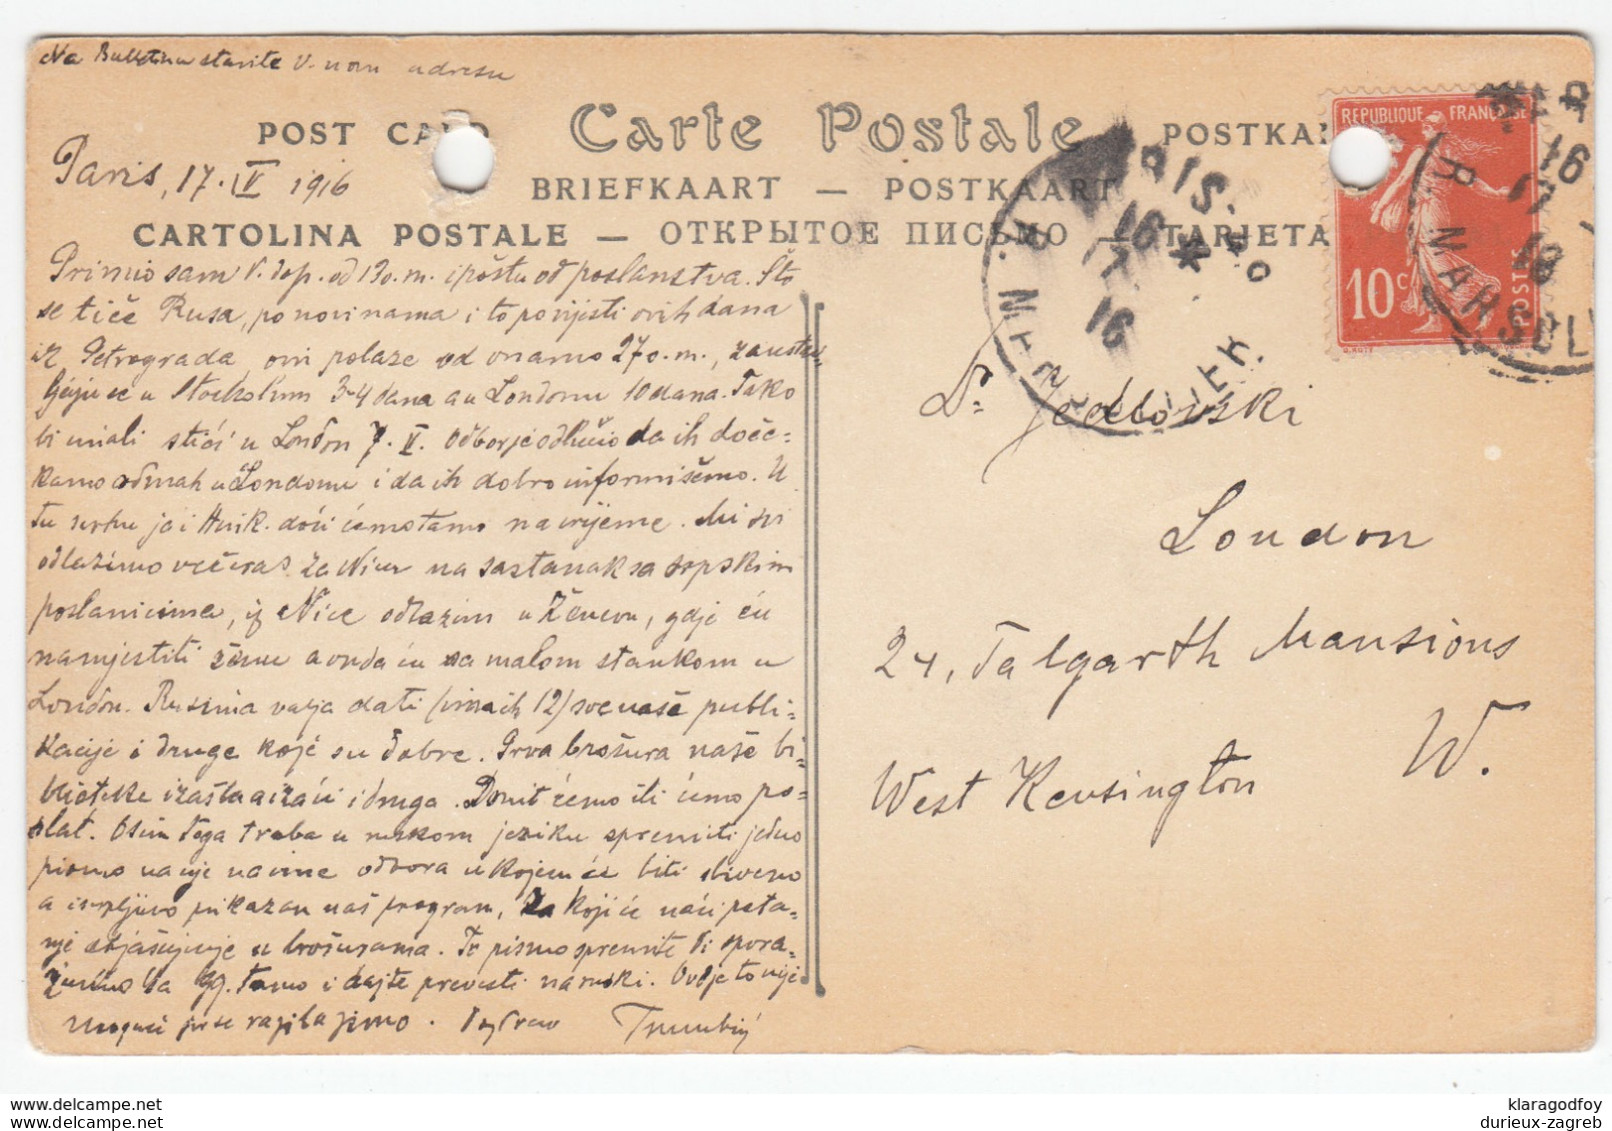 Na Bulletinu stavite V. novu adresu
POST CARD Carte Postale POSTKA
Paris, 17. IV 1916
BRIEFKAART — POSTKAART
CARTOLINA POSTALE — ОТКРЫТОЕ ПИСЬМО — TARJETA
REPUBLIQUE FRANÇAISE
10c
POSTES
Primio sam V. dop. od 13 o. m. i poštu od poslanstva. Što
se tiče Rusa, po novinama i to povijesti ovih dana
iz Petrograda oni polaze od onamo 27 o. m., zaustav-
ljajuće u Stockholm 3-4 dana a u Londonu 10 dana. Tako
bi imali stići u London 7. V. Odbor je odlučio da ih doče-
kamo odmah u Londonu i da ih dobro informišemo. U
tu svrhu ja i Hink. doći ćemo tamo na vrijeme. Mi svi
odlazimo večeras za Nicu na sastanak sa srpskim
poslanicima, iz Nice odlazim u Ženevu, gdje ću
namjestiti ženu a onda ću sa malom stankom u
London. Rusima valja dati (ima ih 12) sve naše publi-
kacije i druge koje su dobre. Prva brošura naše bi-
blioteke izašla a izaći i druga. Donit ćemo ili ćemo po-
slat. Osim toga treba u ruskom jeziku spremiti jedno
pismo na nje na ime odbora u kojem će biti
a prikazan naš program, za koji će naći pita-
nje objašnjenje u brošurama. To pismo spremite Vi spora-
zumno sa gg. tamo i dajte prevesti na ruski. Ovdje to nije
moguće jer se razilazimo. Pozdrav Trumbić
Dr. Jedlowski
London
24, Talgarth Mansions
West Kensington W.
klaragodfoy
durieux-zagreb